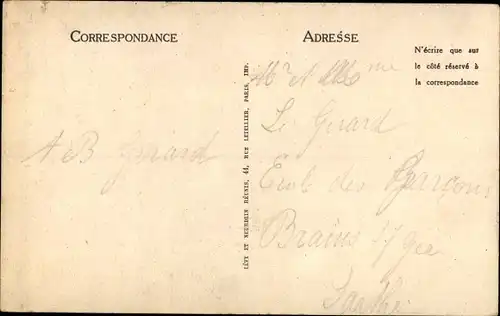 CORRESPONDANCE
ADRESSE
N'écrire que sur
le côté réservé à
la correspondance
LÉVY ET NEURDEIN RÉUNIS, 44, RUE LETELLIER, PARIS, IMP.
A B Girard
Mr et Mme
Girard
Ecole des Garçons
Brains s/ Gée
Sarthe